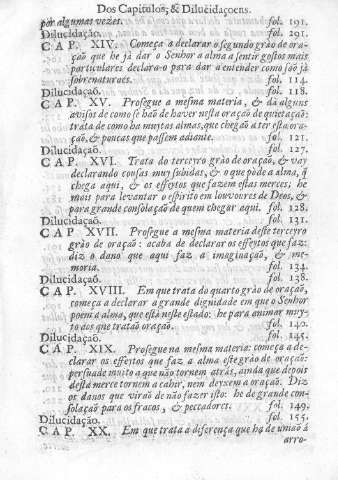 Dos Capitulos, & Dilucidaçoens.
por algumas vezes. fol. 191.
Dilucidação. fol. 291.
CAP. XIV. Começa a declarar o segundo grào de ora-
ção que he jà dar o Senhor a alma a sentir gostos mais
particulares declara-o para dar a entender como saõ jà
sobrenaturaes. fol. 114.
Dilucidaçaõ. fol. 118.
CAP. XV. Prosegue a mesma materia, & dà alguns
avisos de como se haõ de haver nesta oração de quietaçaõ:
trata de como ha muytas almas, que chegaõ a ter esta ora-
çaõ, & poucas que passem adiante. fol. 121.
Dilucidaçaõ. fol. 127.
CAP. XVI. Trata do terceyro grào de oração, & vay
declarando cousas muy subidas, & o que pòde a alma, q̃
chega aqui, & os effeytos que fazem estas merces; he
mais para levantar o espirito em louvores de Deos, &
para grande consolação de quem chegar aqui. fol. 128.
Dilucidaçaõ. fol. 131.
CAP XVII. Prosegue a mesma materia deste terceyro
grào de oração: acaba de declarar os effeytos que faz:
diz o dano que aqui faz a imaginação, & me-
moria. fol. 134.
Dilucidaçaõ. fol. 138.
CAP. XVIII. Em que trata do quarto grào de oração,
começa a declarar a grande dignidade em que o Senhor
poem a alma, que està neste estado: he para animar muy-
to dos que trataõ oração. fol. 140.
Dilucidaçaõ. fol. 145.
CAP. XIX. Prosegue na mesma materia: começa a de-
clarar os effeytos que faz a alma este grào de oração:
persuade muyto a que não tornem atràs, ainda que depois
desta merce tornem a cahir, nem deyxem a oração. Diz
os danos que viraõ de não fazer isto: he de grande con-
solaçaõ para os fracos, & peccadores. fol. 149.
Dilucidação. fol. 155.
CAP. XX. Em que trata a diferença que ha de uniaõ à
arro-